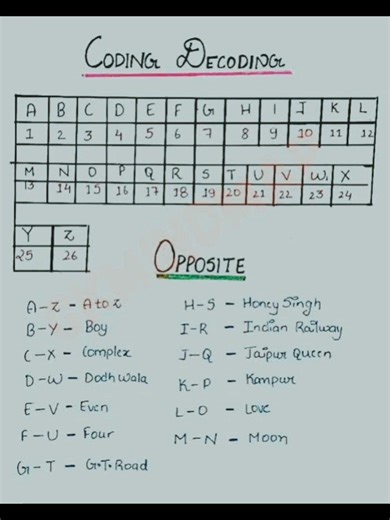 CODING DECODING
A B C D E F G H I J K L
1 2 3 4 5 6 7 8 9 10 11 12
M N O P Q R S T U V W X
13 14 15 16 17 18 19 20 21 22 23 24
Y Z
25 26
OPPOSITE
A-Z - A to Z
B-Y - Boy
C-X - Complex
D-W - Dodhwala
E-V - Even
F-U - Four
G-T - G.T. Road
H-S - Honey Singh
I-R - Indian Railway
J-Q - Jaipur Queen
K-P - Kanpur
L-O - Love
M-N - Moon